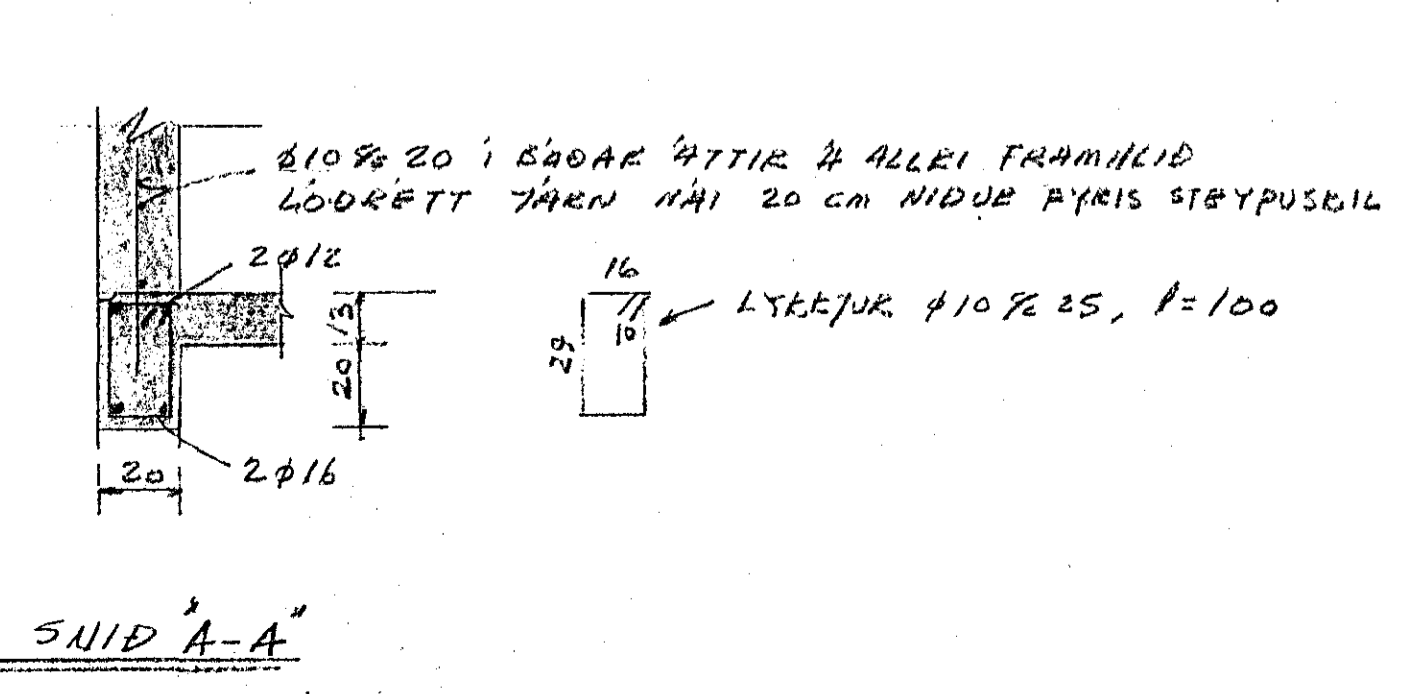 ø10 % 20 Í BÁÐAR ÁTTIR Á ALLRI FRAMHLIÐ
LÓÐRÉTT JÁRN NÁI 20 cm NIÐUR FYRIR STEYPUSKIL
2ø12
16
LYKKJUR ø10 % 25, l=100
10
29
13
20
20
2ø16
SNIÐ "A-A"